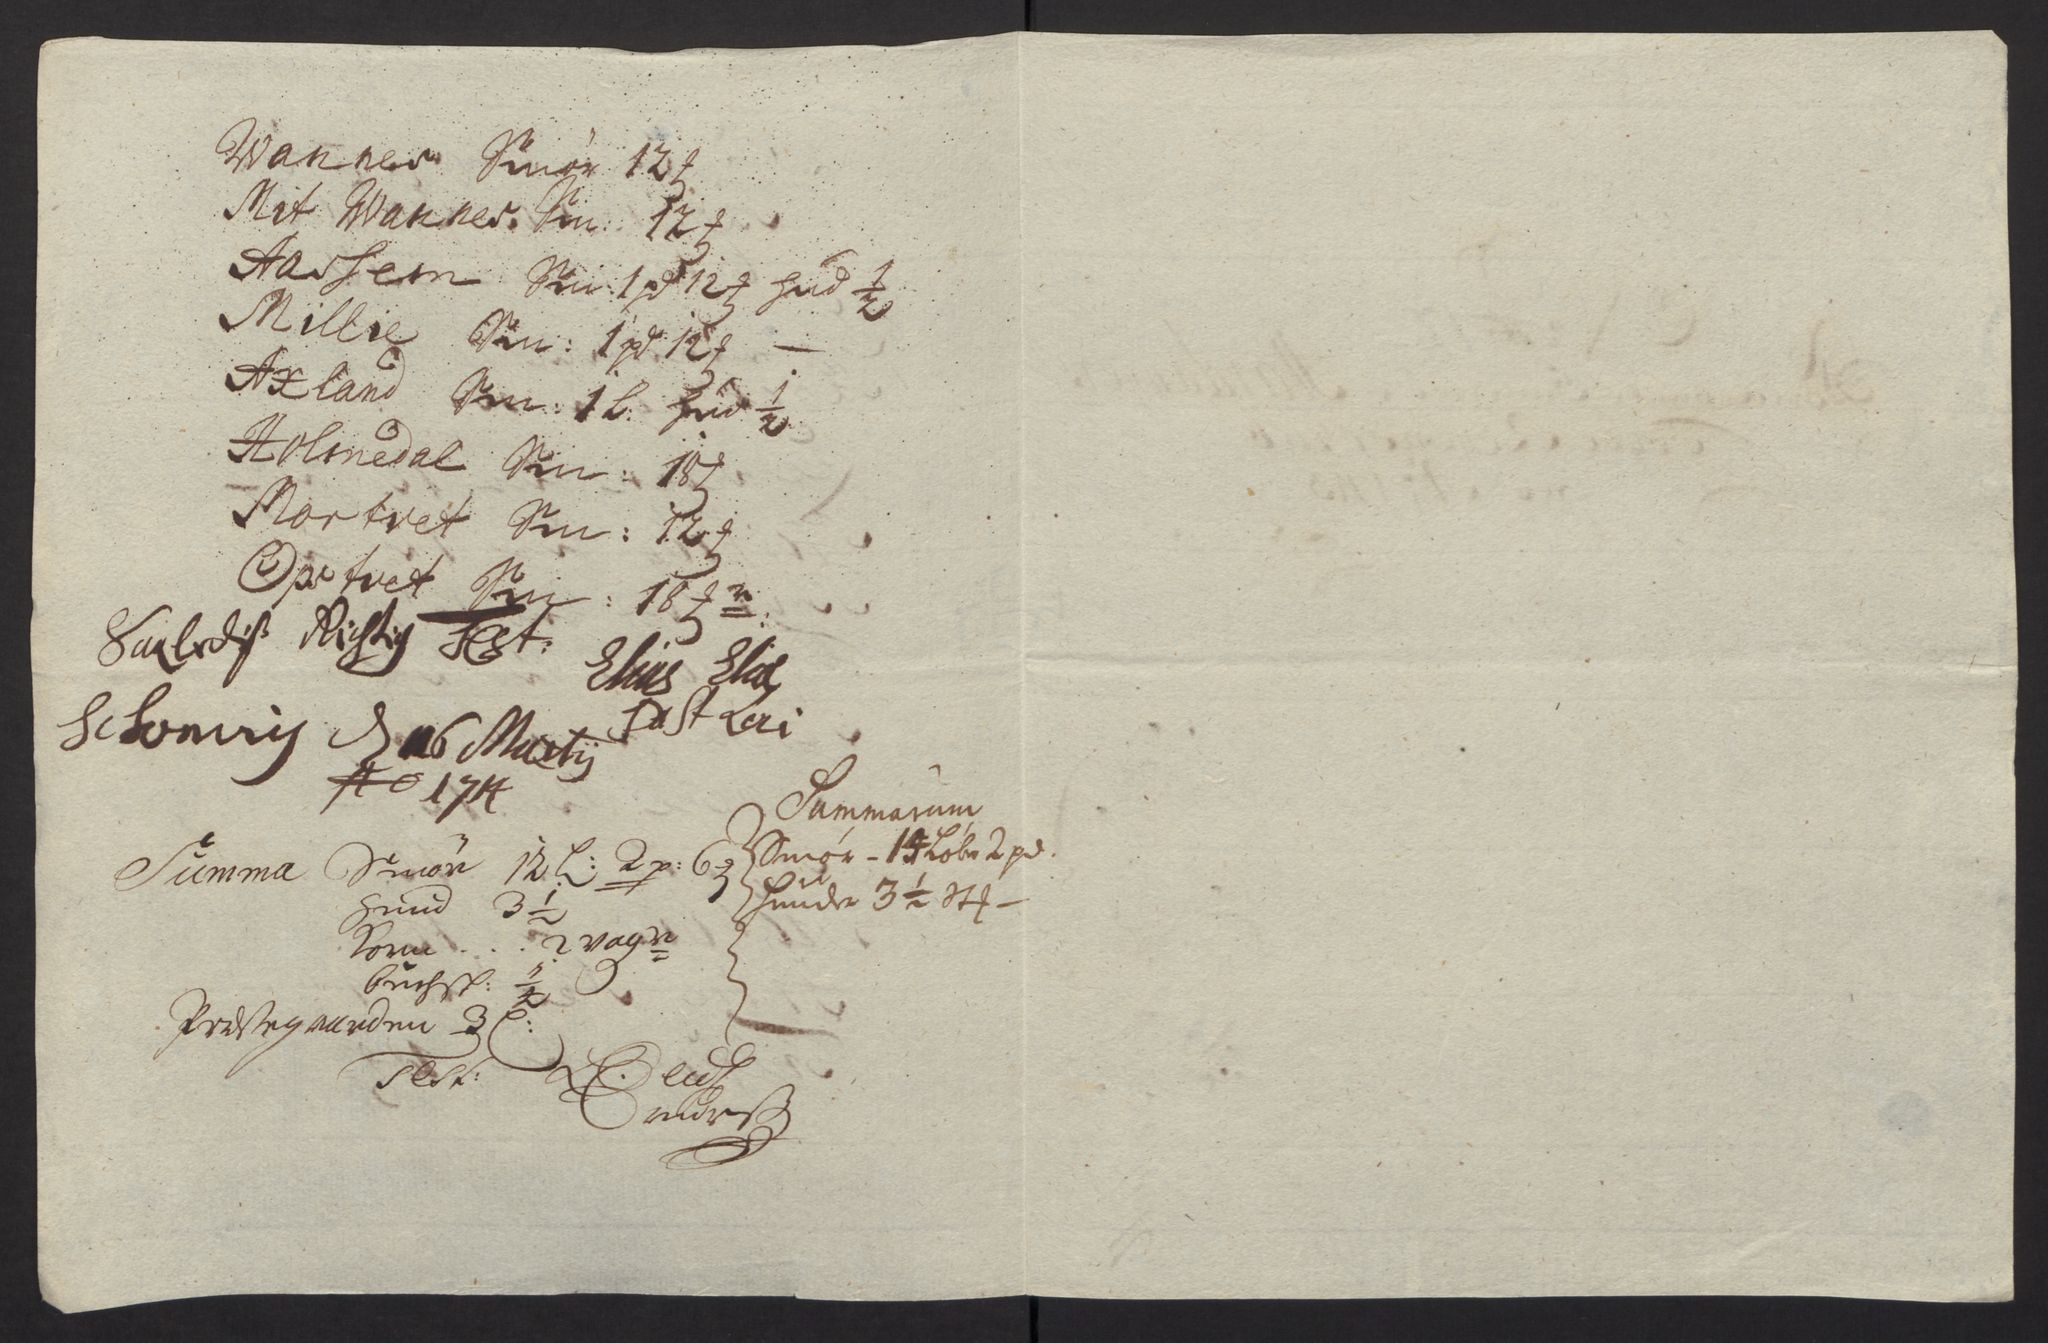 Wannes Smör 12
Mit Wannes. Sm: 12
Aashem Sm: 1 pd 12 hud ½
Millie Sm: 1 pd 12 —
Axland Sm: 1 l. hud ½
Holmedal Sm: 18
Mortvet Sm: 12
Opstvet Sm: 18
Richtig Test:
Elias
Schonvig d 26 Martij
Ao 1714
Summa Smör 12 L: 2 p: 6
Huud 3 ½
Korn . . . 2 vog
buchsk:
Prestegaarden 3 l:
Test:
Summarum
Smör - 14 Løbe 2 pd.
Huuder 3 ½ St —